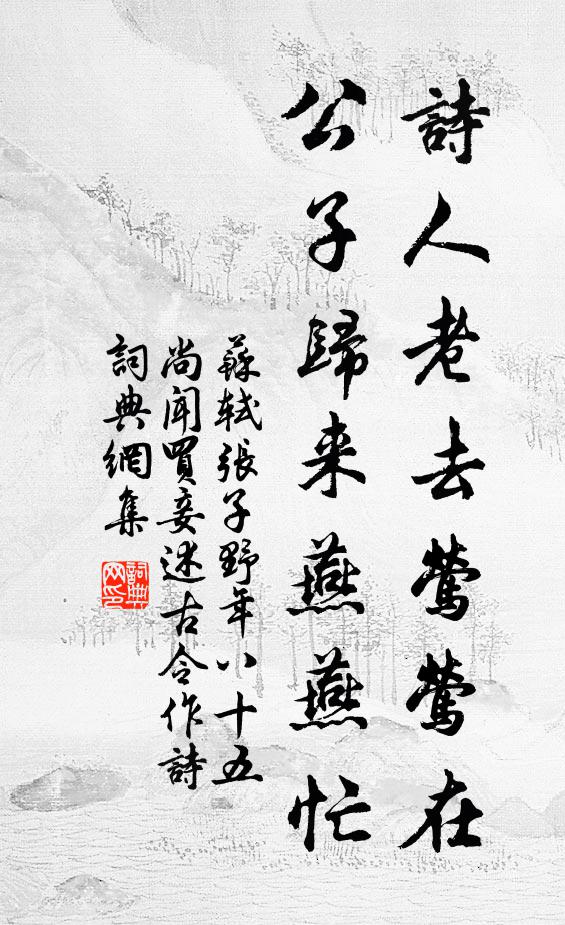 詩人老去鶯鶯在
公子歸来燕燕忙
蘇軾張子野年八十五
尚闻買妾述古令作詩
詞典網集
詞典
网印